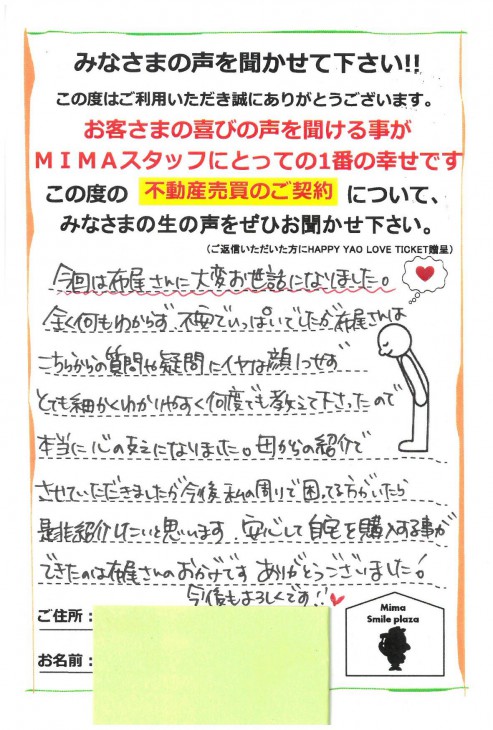 みなさまの声を聞かせて下さい!!
この度はご利用いただき誠にありがとうございます。
お客さまの喜びの声を聞ける事が
MIMAスタッフにとっての1番の幸せです
この度の 不動産売買のご契約 について、
みなさまの生の声をぜひお聞かせ下さい。
(ご返信いただいた方にHAPPY YAO LOVE TICKET贈呈)
今回は布尾さんに大変お世話になりました。
全く何もわからず、不安でいっぱいでしたが布尾さんは
こちらからの質問や疑問にイヤな顔1つせず
とても細かくわかりやすく何度でも教えて下さったので
本当に心の支えになりました。母からの紹介で
させていただきましたが今後私の周りで困ってる方がいたら
是非紹介したいと思います。安心して自宅を購入する事が
できたのは布尾さんのおかげです ありがとうございました!
今後もよろしくです!!
ご住所:
お名前:
Mima
Smile plaza